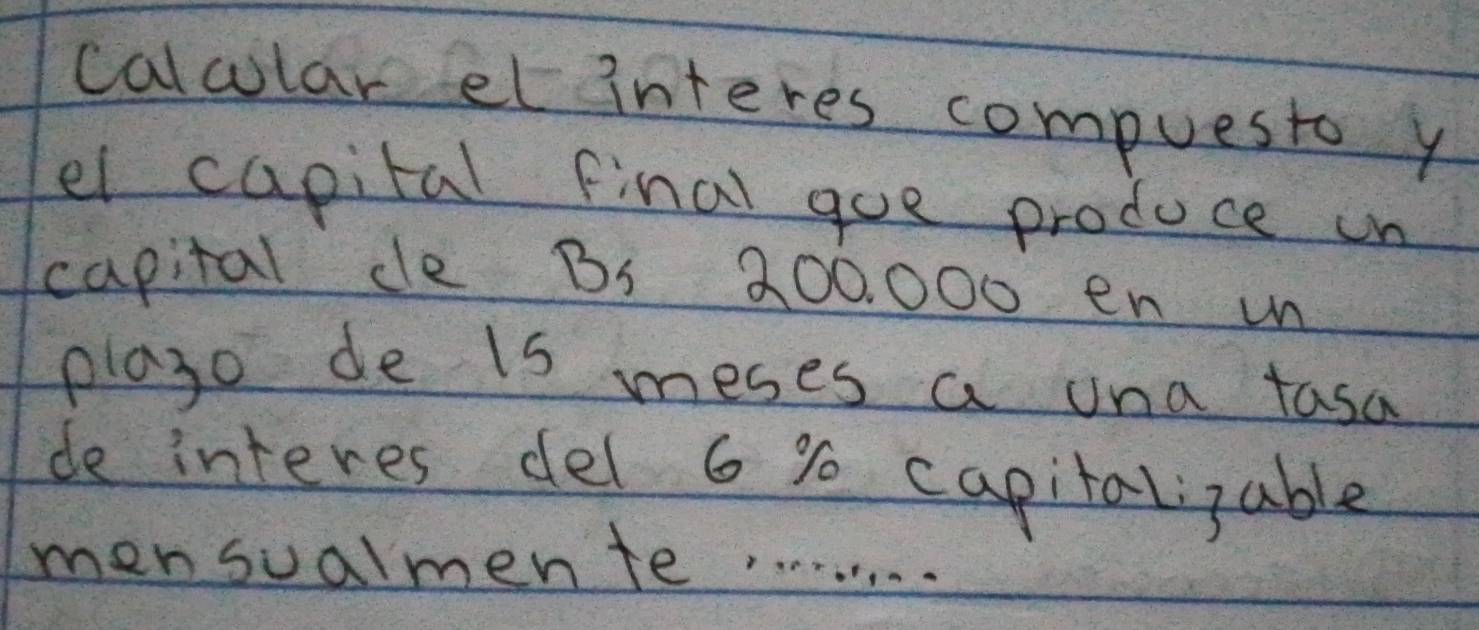 Calcular el interes compuesto y
el capital final que produce un
capital de Bs 200.000 en un
plazo de 15 meses a una tasa
de interes del 6 % capitalizable
mensualmente .........